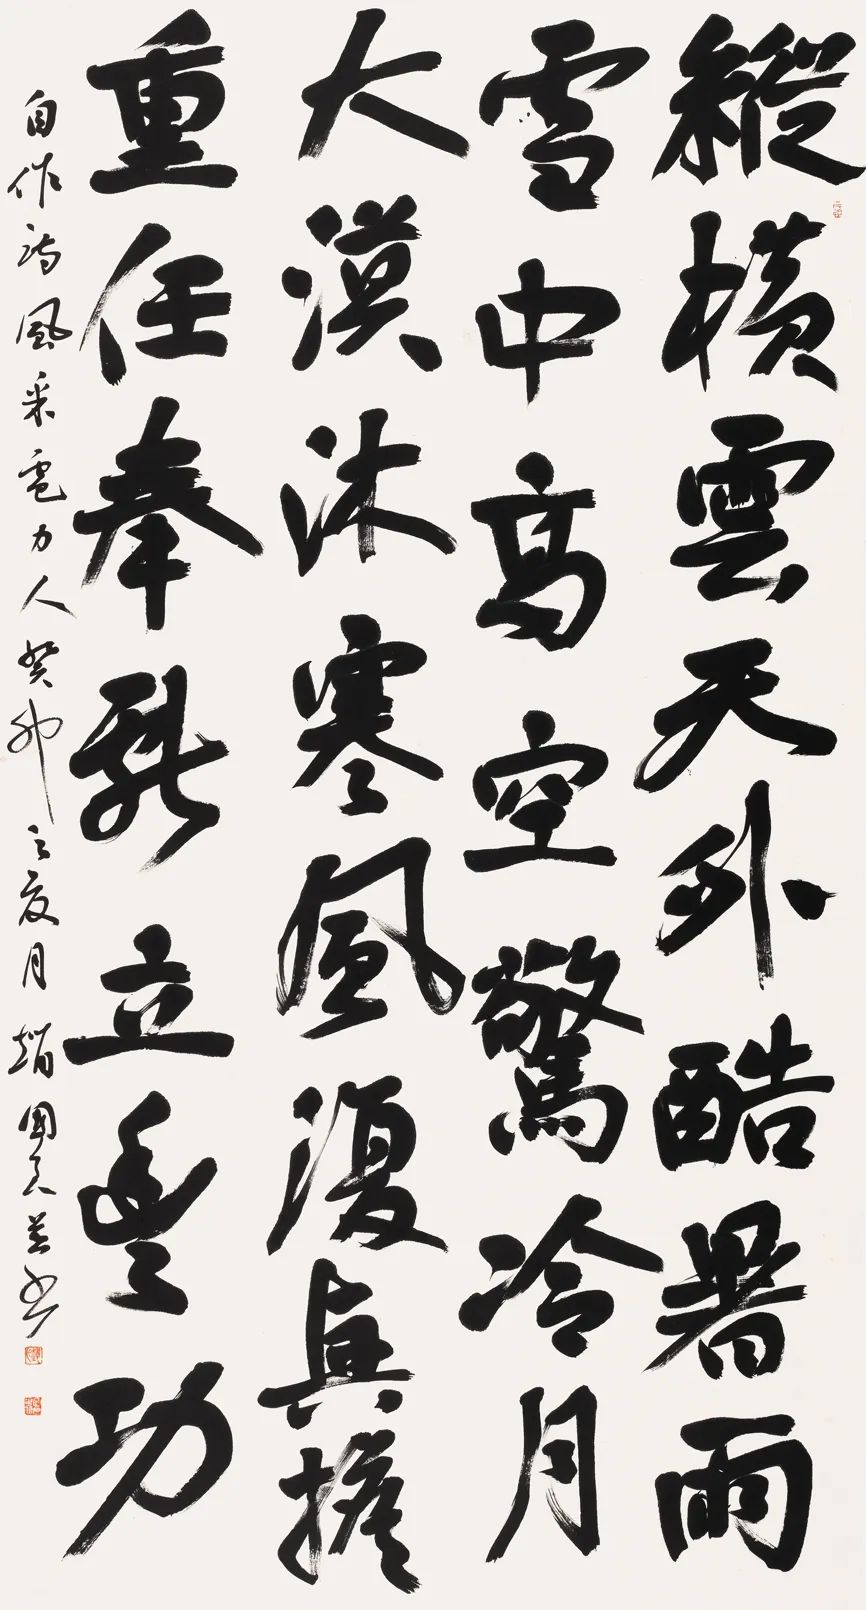 縱橫雲天外酷暑雨
雪中高空驚冷月
大漠沐寒風真擔
重任奉獻立豐功
自作詩風采電力人癸卯之夏月趙國并書